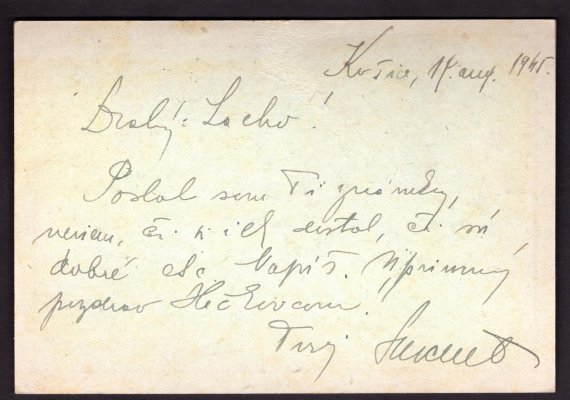 Košice, 14. aug. 1945.
Drahý Lacko!
Poslal som Ti známky,
neviem, či si ich dostal, či sú
dobré atď. Napíš. Úprimný
pozdrav
Tvoj